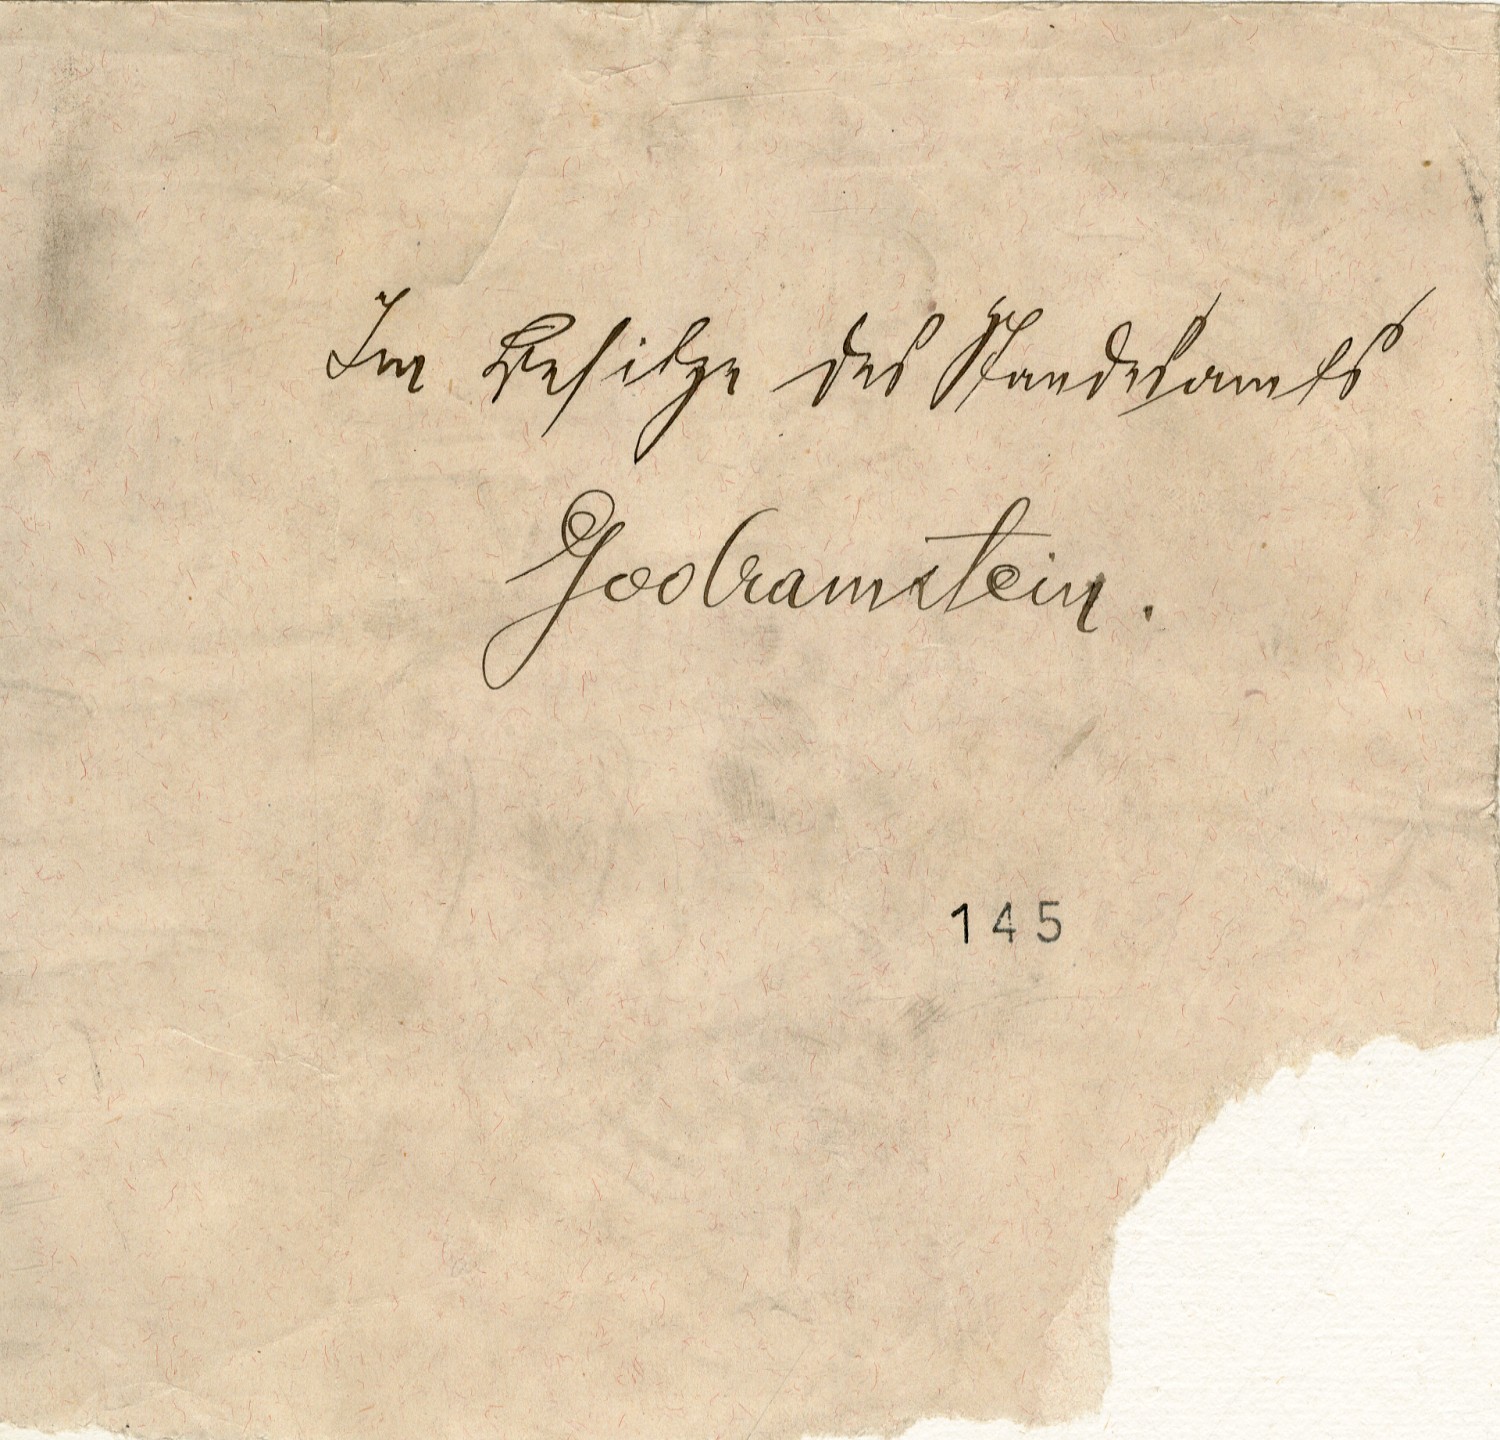 Im Besitze des Standesamts
Godramstein.
145